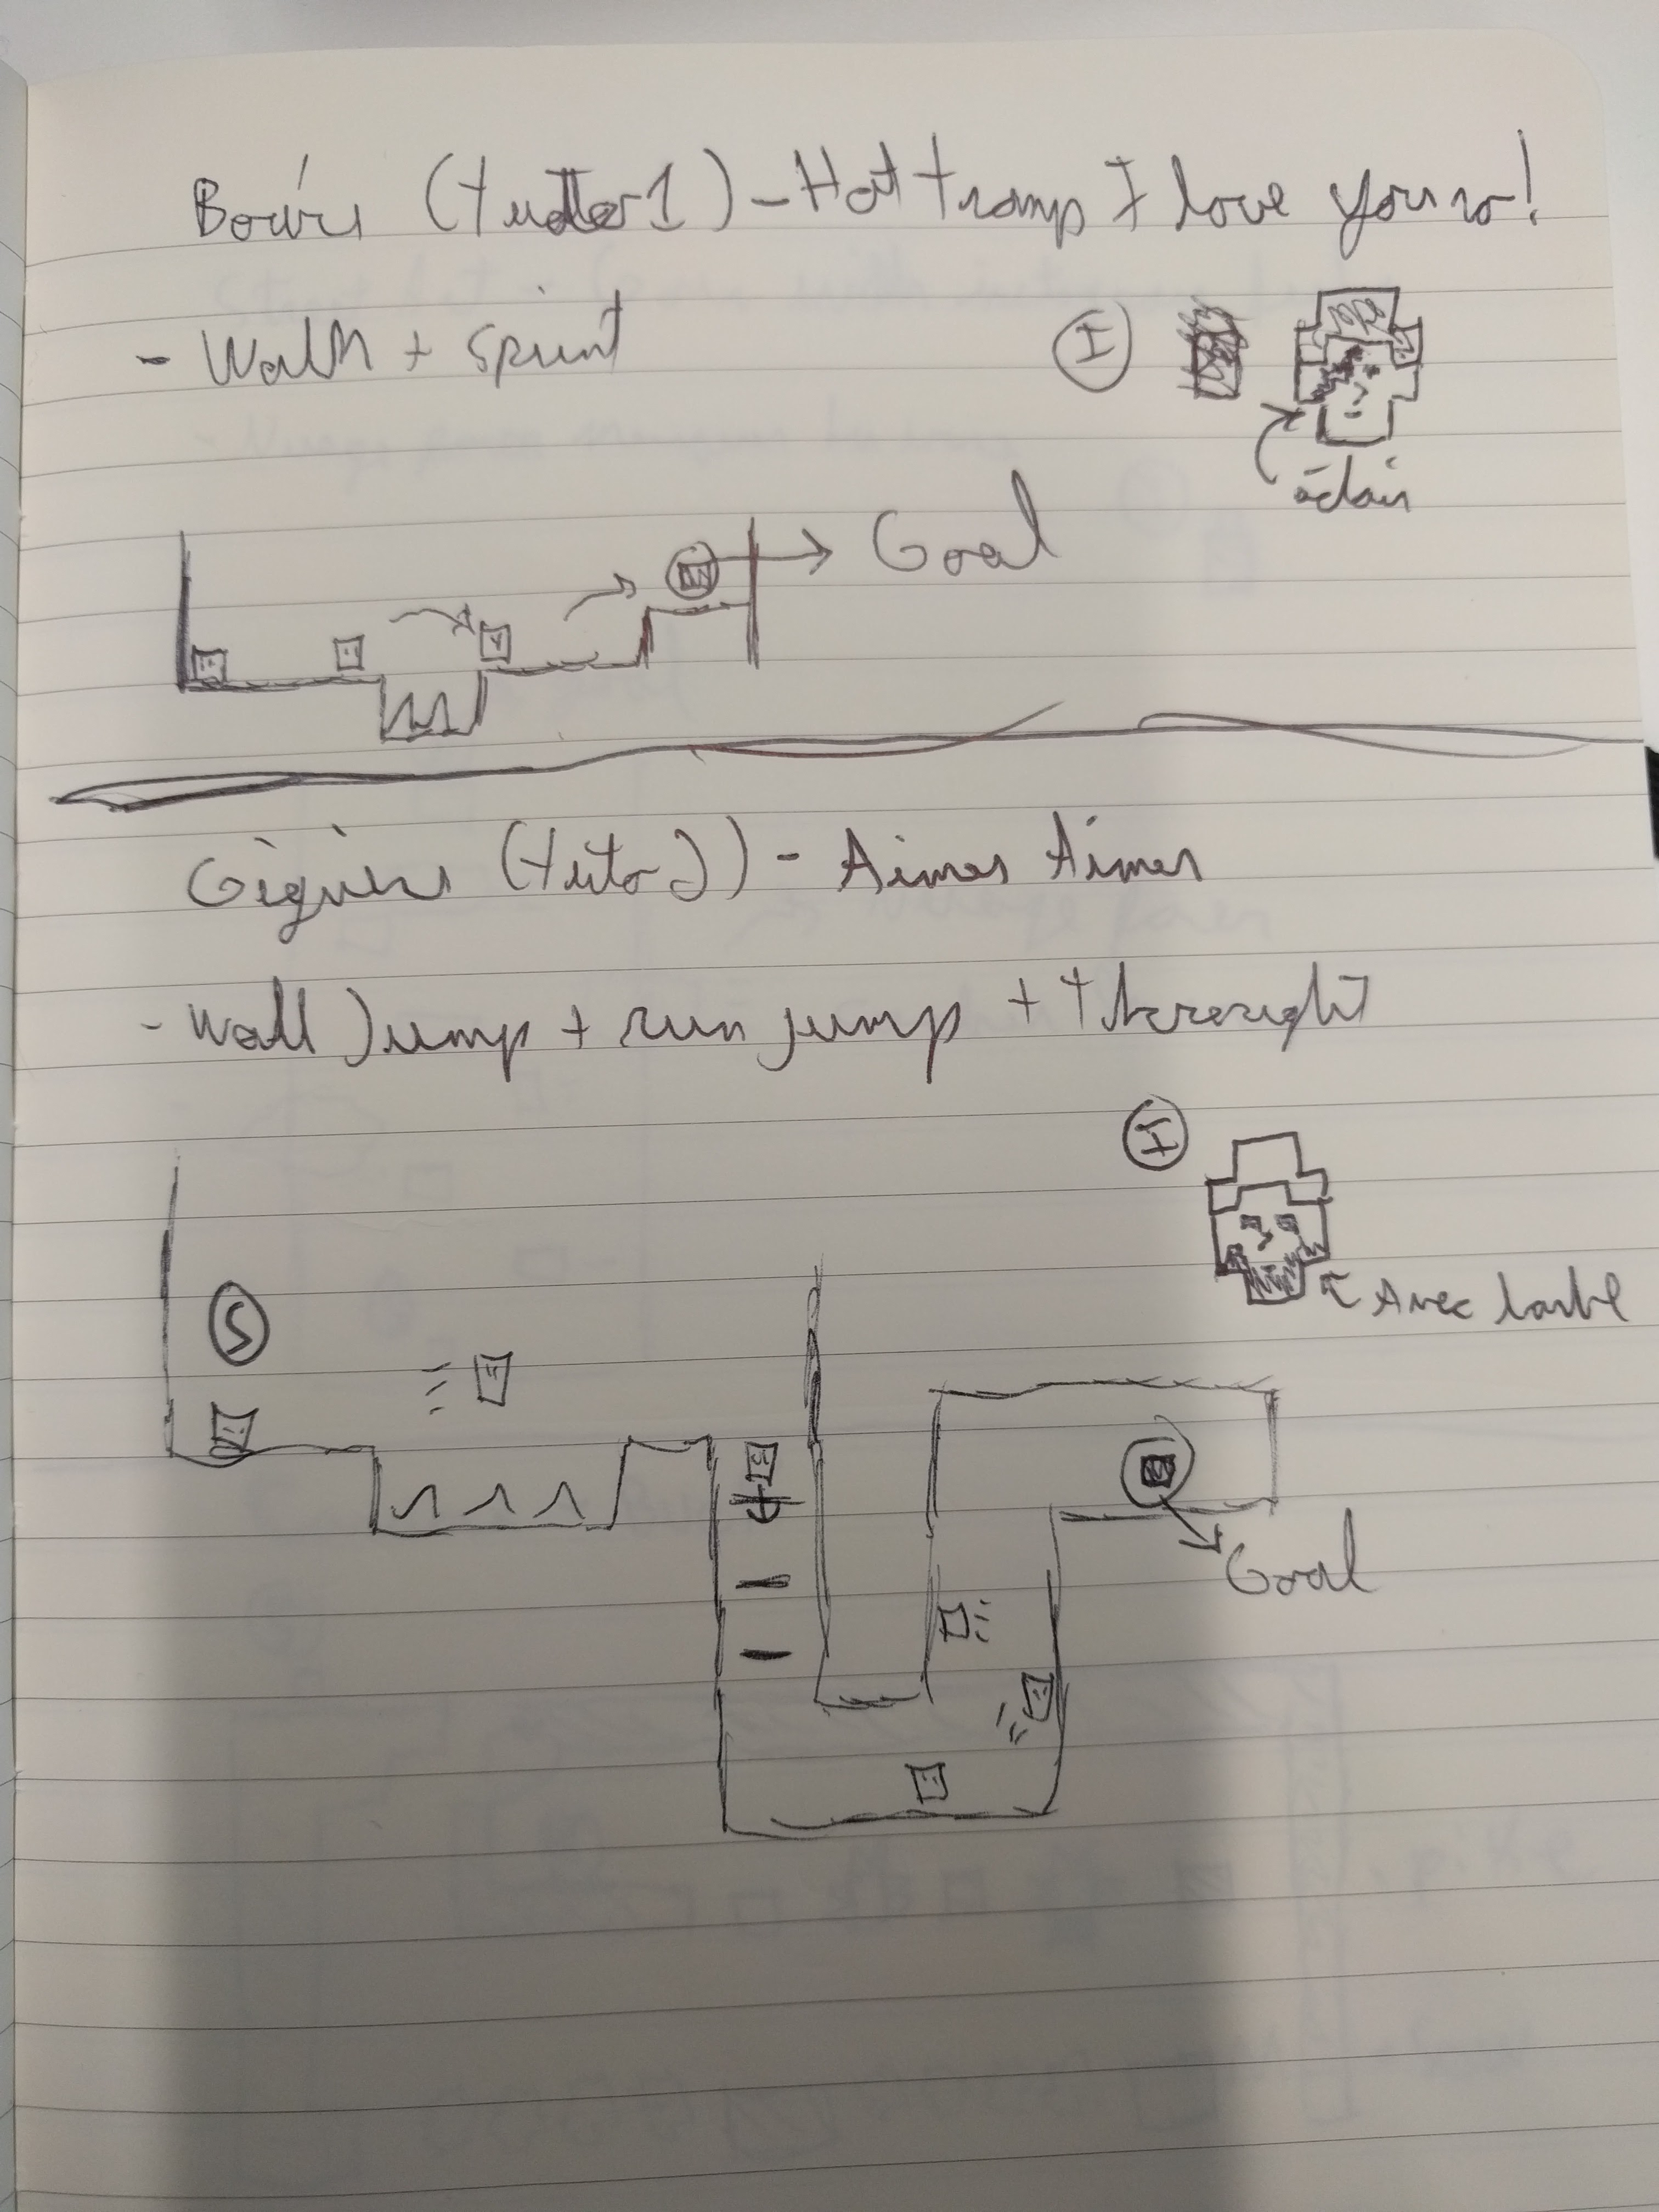 (tuto 1) - Hot tramp I love you so!
- Walk + Sprint
I
éclair
Goal
(tuto 2) - Aimes Aimes
- Wall Jump + run jump + through
I
Avec barbe
S
Goal